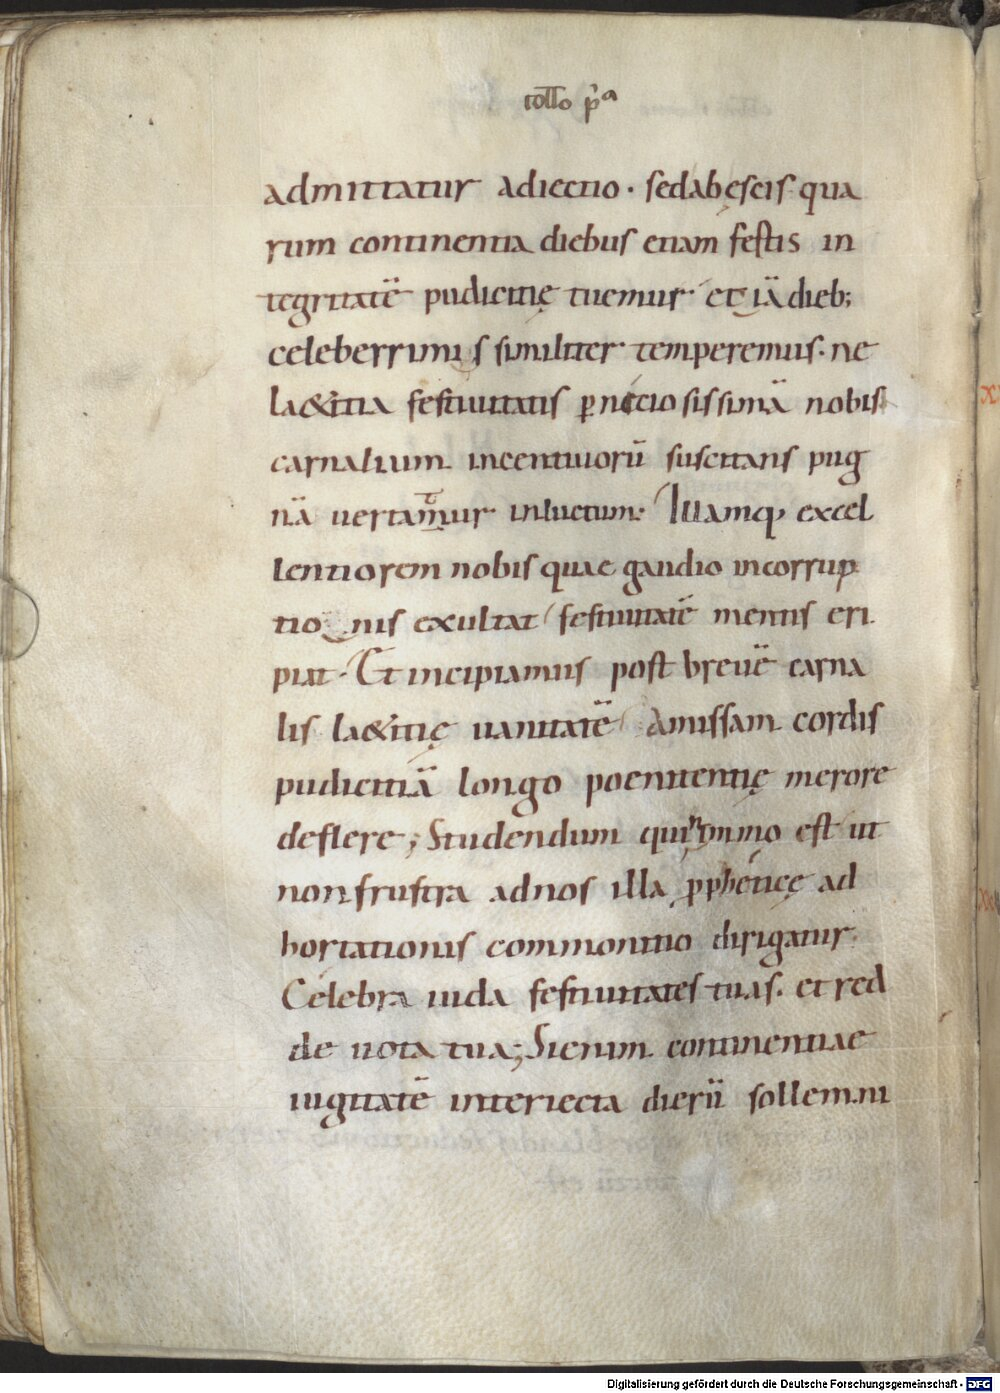 collo pͥͣ
admittatur adiectio · sed ab escis qua
rum continentia diebus etiam festis in
tegritatē pudicitię tuemur et iā dieb;
celeberrimis similiter temperemus · ne
la&itia festiuitatis ꝑniciosissimā nobis
carnalium incentiuorū suscitans pug
nā uertamur in luctum · Illamq; excel
lentiorem nobis quae gaudio incorrup
tionis exultat festiuitatē mentis eri
piat · Et incipiamus post breuē carna
lis la&itię uanitatē amissam cordis
pudicitiā longo poenitentię merore
deflere; Studendum quin immo est ut
non frustra ad nos illa ꝓpheticę ad
hortationis commonitio dirigatur.
Celebra iuda festiuitates tuas · et red
de uota tua; Sic enim continentiae
iugitatē interiecta dierū sollemni
Digitalisierung gefördert durch die Deutsche Forschungsgemeinschaft - DFG